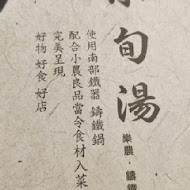 旬湯
樂農．鑄鐵
使用南部鐵器 鑄鐵鍋
配合小農良品當令食材入菜
完美呈現
好物 好食 好店